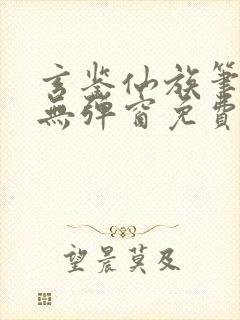 玄鉴仙族筆
無彈窗免費
望晨莫及